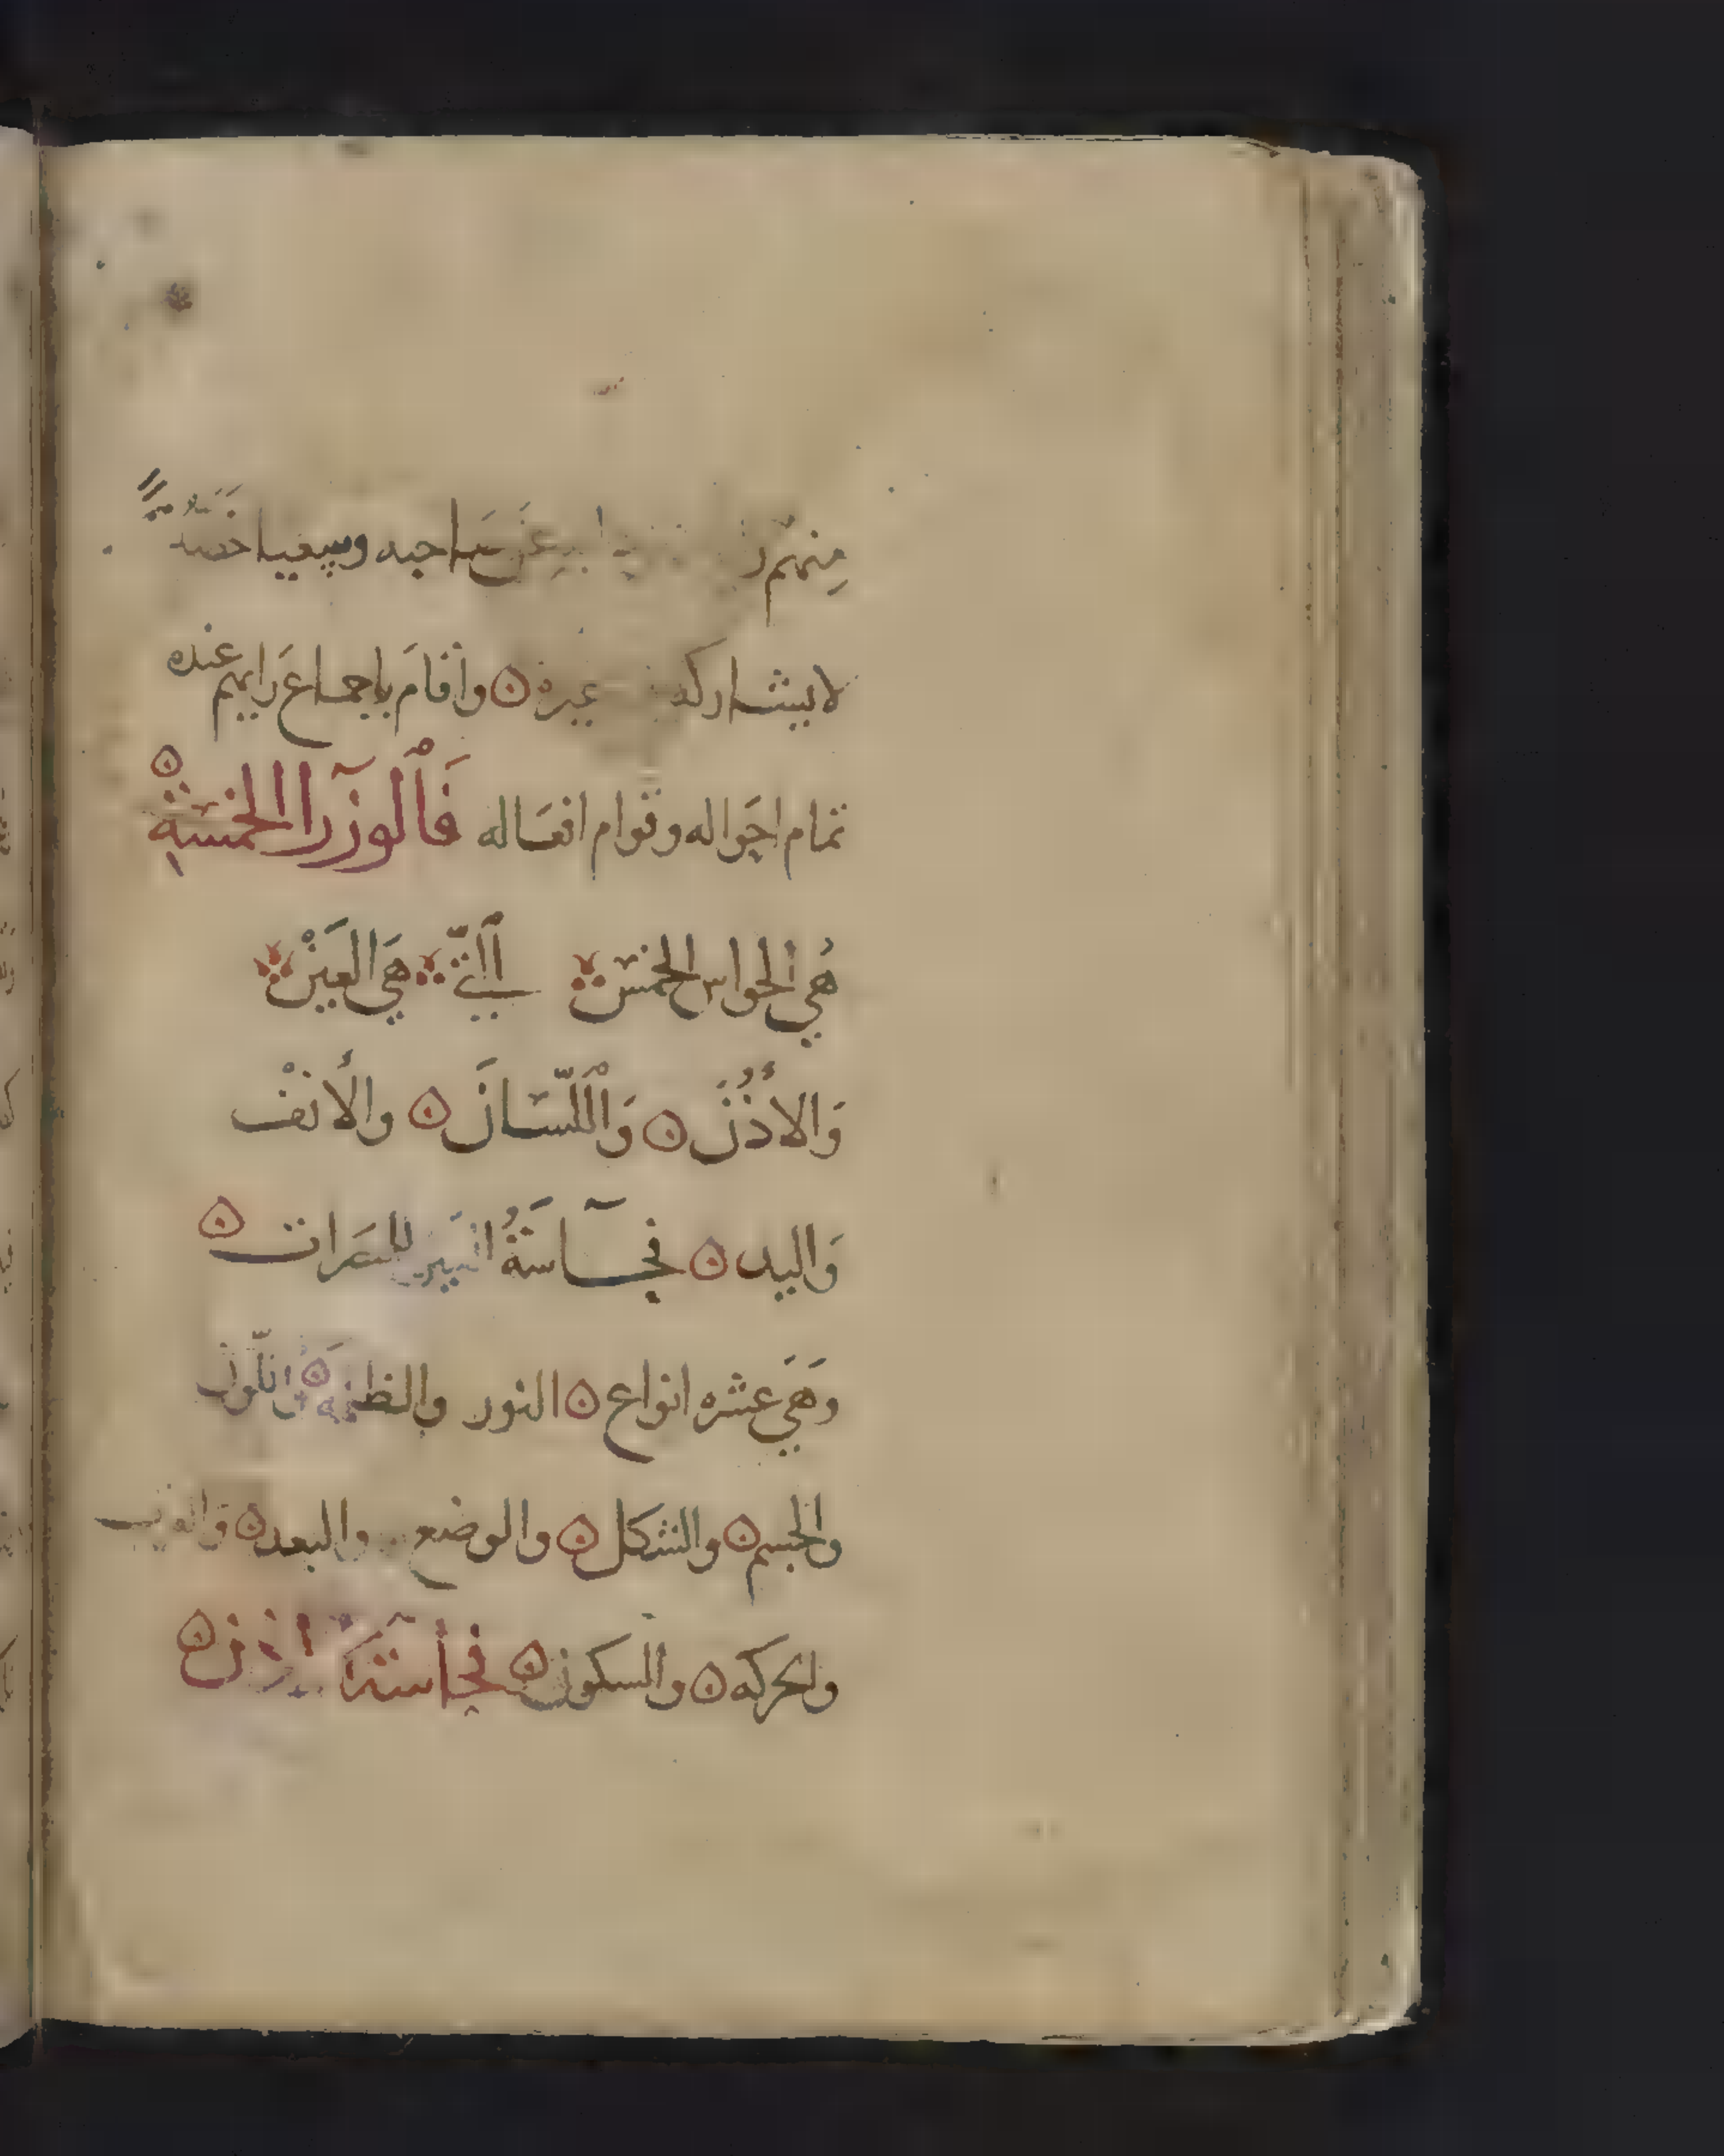 مِنهُم عَن صَاحبه وفيما خصّه
لا يشاركه غيره ۞ وأقام بإجماع رَأيهم عنده
تمام احوَاله وقوام افعَاله فَٱلوزرآ الخمسَةِ ۞
هُي الحواس الخمسْ ٱلّتي هيَ العَينْ
وَالأُذُنَ ۞ وَٱللّسَانَ ۞ والأنفْ
وَاليد ۞ فحآسَةُ العَين للمبصَرات ۞
وَهيَ عشره انواع ۞ النور والظلمَه ۞ واللّون
والجسم ۞ والشكل ۞ والوضع والبعد ۞ وَالقرب
والحركه ۞ والسكون ۞ فحاسَة الاذن ۞